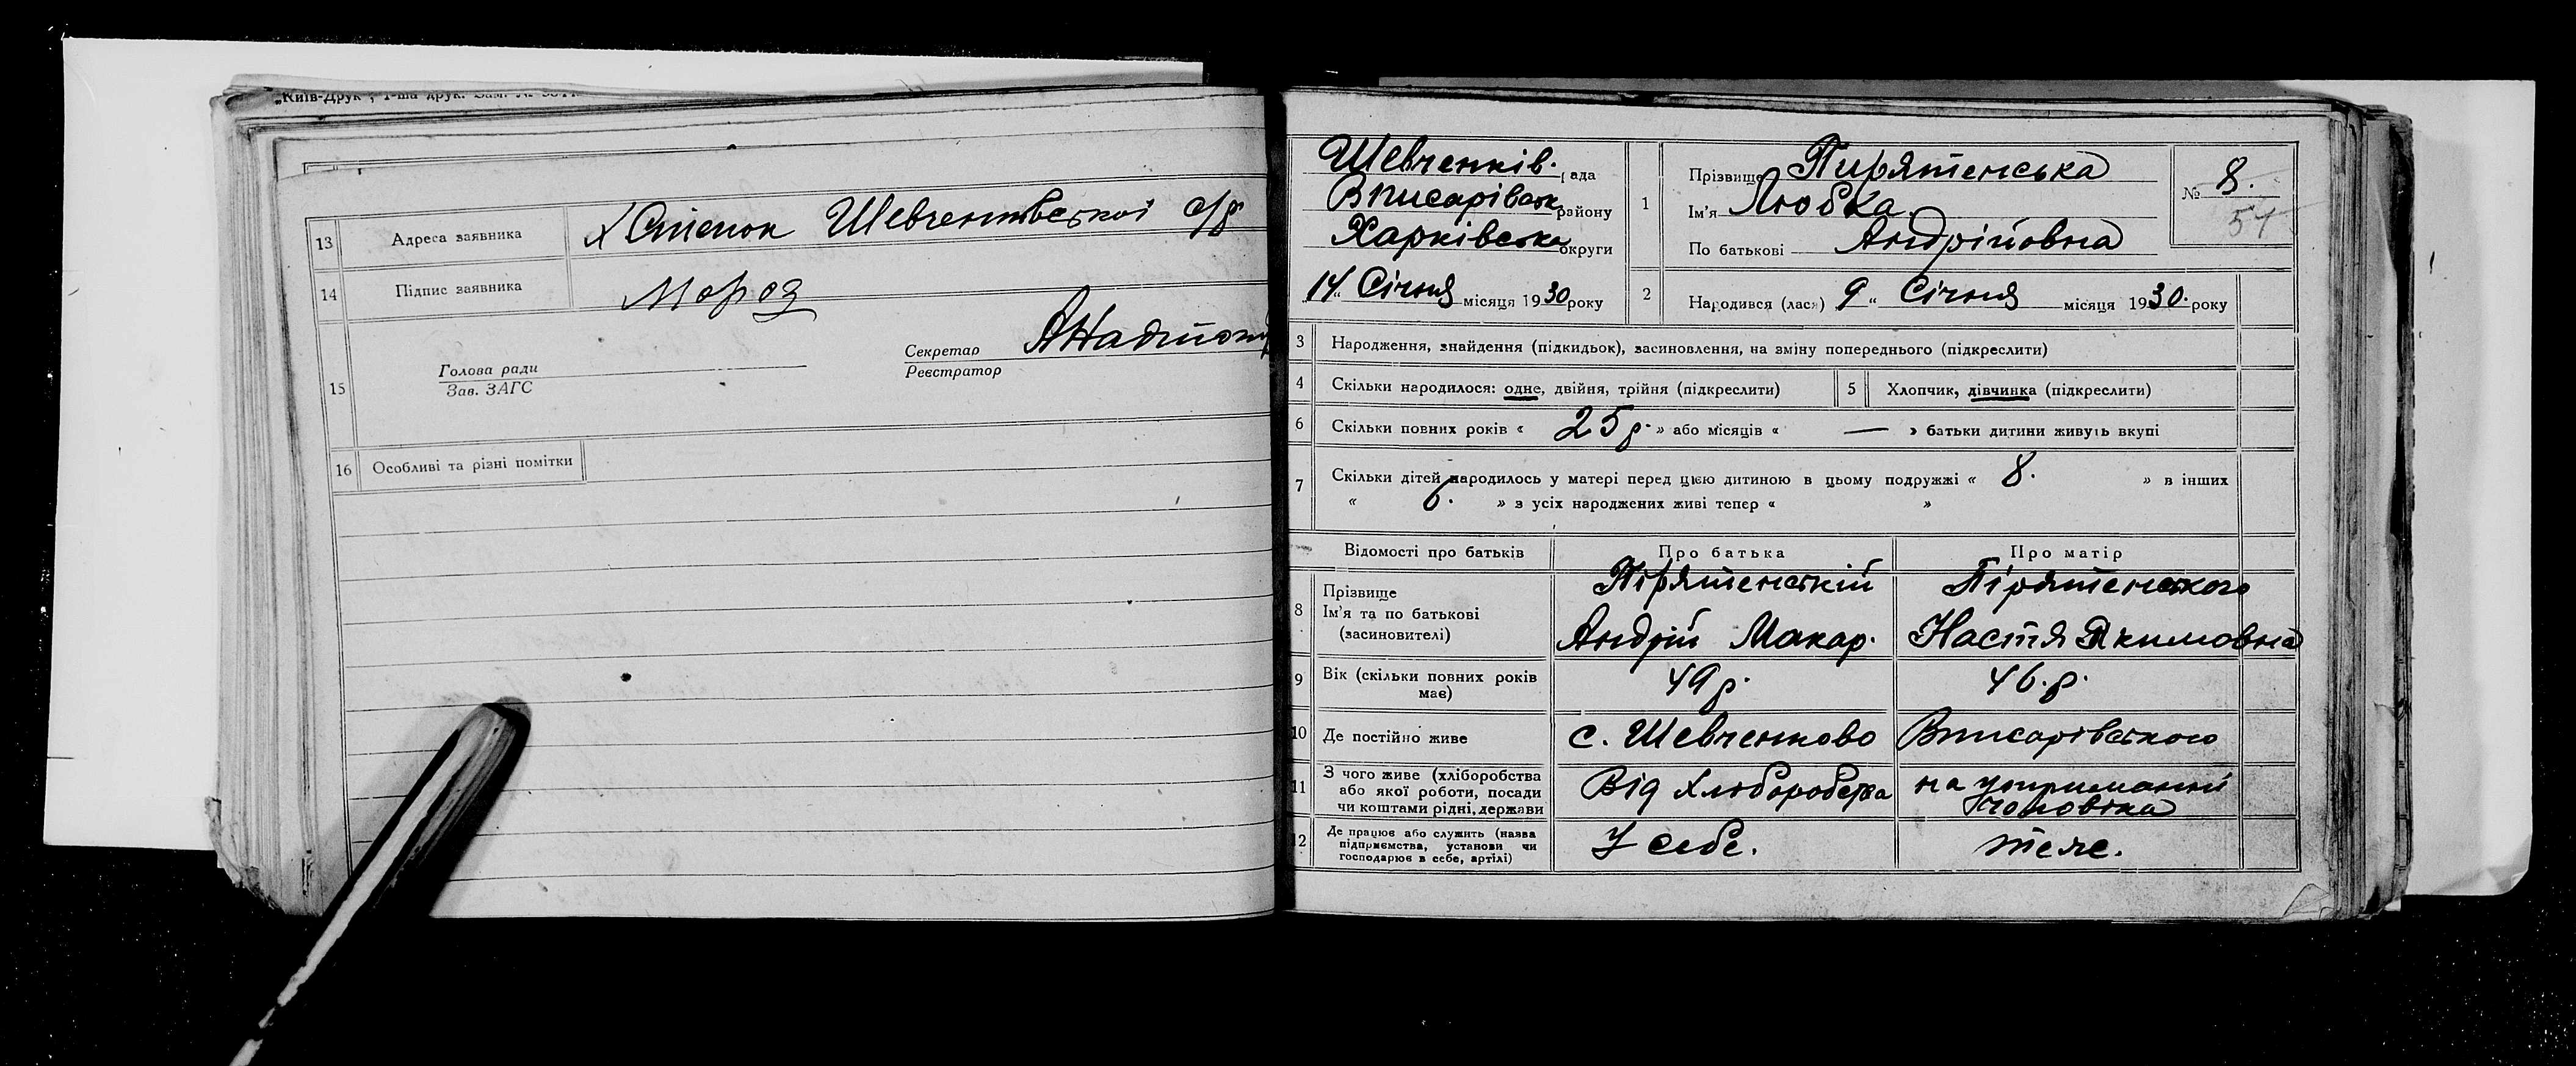 „Київ-Друк", 1-ша друк. Зам. №
13 Адреса заявника х Степок Шевченківської с/р
14 Підпис заявника Мороз
15 Голова ради
Зав. ЗАГС
Секретар
Реєстратор
16 Особливі та різні помітки
Шевченків. рада
Вписарівськ району
Харківська округи
„14" Січня місяця 1930 року
1 Прізвище Пирятенська
Ім'я Любка
По батькові Андрійовна
№ 8.
54
2 Народився (лася) „9" Січня місяця 1930. року
3 Народження, знайдення (підкидьок), засиновлення, на зміну попереднього (підкреслити)
4 Скільки народилося: одне, двійня, трійня (підкреслити)
5 Хлопчик, дівчинка (підкреслити)
6 Скільки повних років « 25 р. » або місяців « — » батьки дитини живуть вкупі
7 Скільки дітей народилось у матері перед цією дитиною в цьому подружжі « 8. » в інших
« 6. » з усіх народжених живі тепер « »
Відомості про батьків Про батька Про матір
8 Прізвище
Ім'я та по батькові
(засиновителі)
Пірятенській
Андрій Макар.
Пірятенського
Настя Якимовна
9 Вік (скільки повних років
має)
49 р.
46. р.
10 Де постійно живе с. Шевченково Вписарівського
11 З чого живе (хліборобства
або якої роботи, посади
чи коштами рідні, держави
Від хліборобства
на утриманні
чоловіка
12 Де працює або служить (назва
підприємства, установи чи
господарює в себе, артілі)
У себе.
теже.